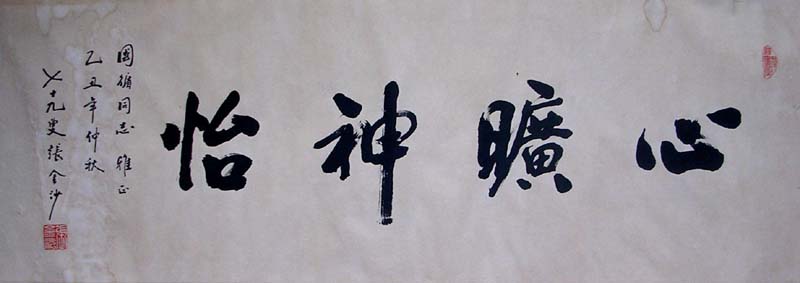 心曠神怡
國循同志雅正
乙丑年仲秋
七十九叟張金沙